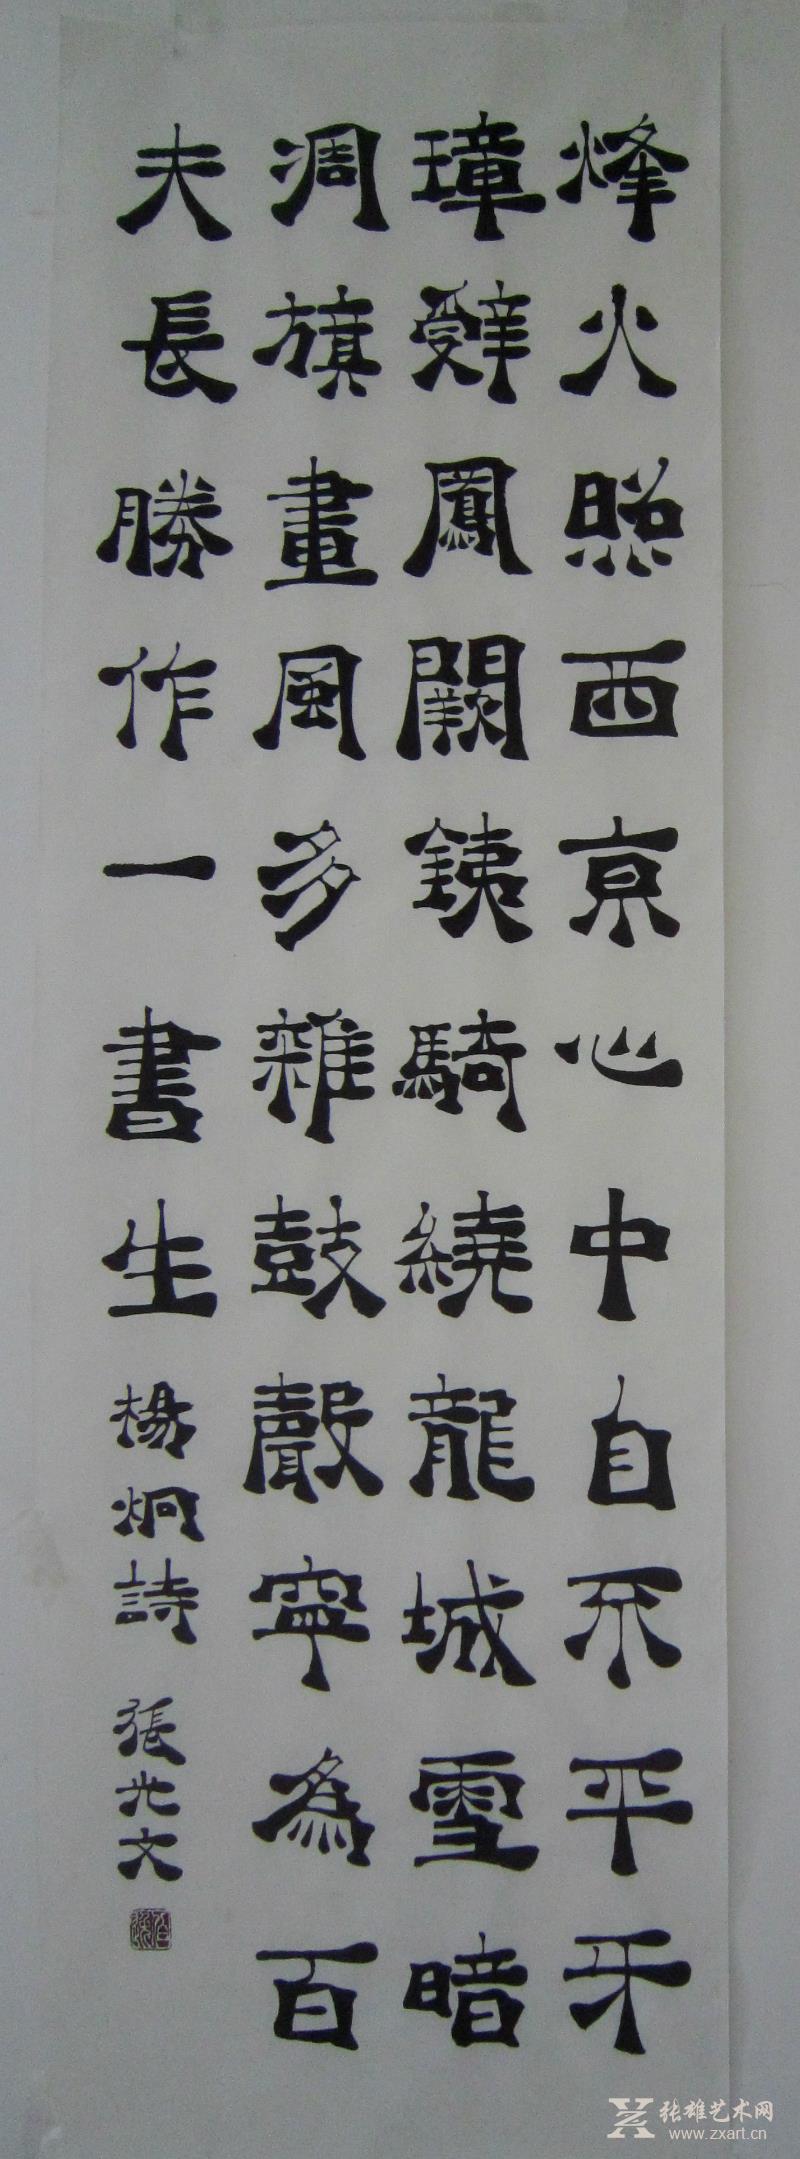 烽火照西京心中自不平牙
璋辭鳳闕銕騎繞龍城雪暗
凋旗畫風多雜鼓聲寧為百
夫長勝作一書生 楊炯詩 張文
张雄艺术网
www.zxart.cn